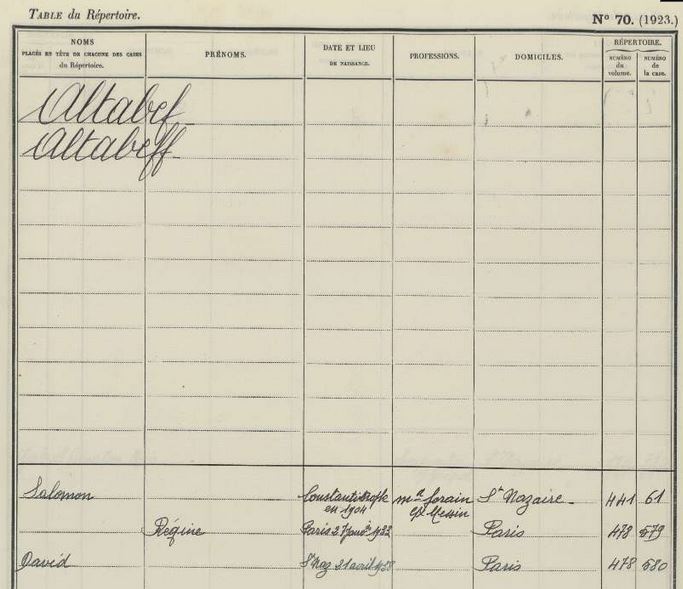 TABLE du Répertoire.
N° 70. (1923.)
NOMS
PLACÉS EN TÊTE DE CHACUNE DES CASES
du Répertoire.
PRÉNOMS.
DATE ET LIEU
DE NAISSANCE.
PROFESSIONS.
DOMICILES.
RÉPERTOIRE.
NUMÉRO
du
volume.
NUMÉRO
de
la case.
Altabef
Altabeff
Salomon Constantinople md forain St Nazaire 441 61
en 1904
Régine Paris 2 1932 Paris 478 579
David St Naz 21 avril 1928 Paris 478 580